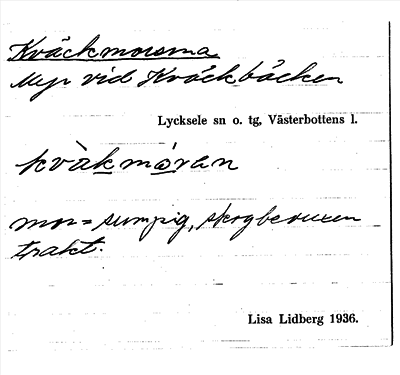 Kväckmorsma
Myr vid Kväckbäcken
Lycksele sn o. tg, Västerbottens l.
kvàkmåran
mor = sumpig, skogbevuxen
trakt.
Lisa Lidberg 1936.